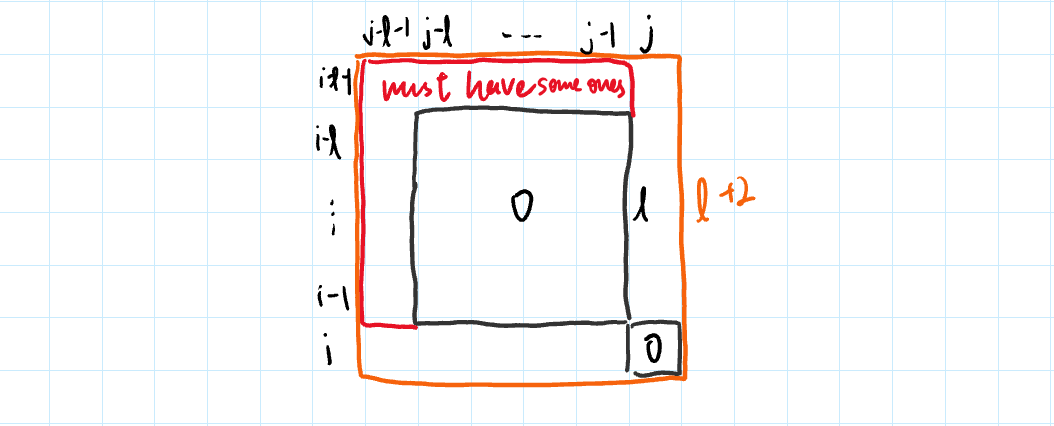 j-l-1 j-l ... j-1 j
i-l-1 must have some ones
i-l
⋮ 0 l l+2
i-1
i 0